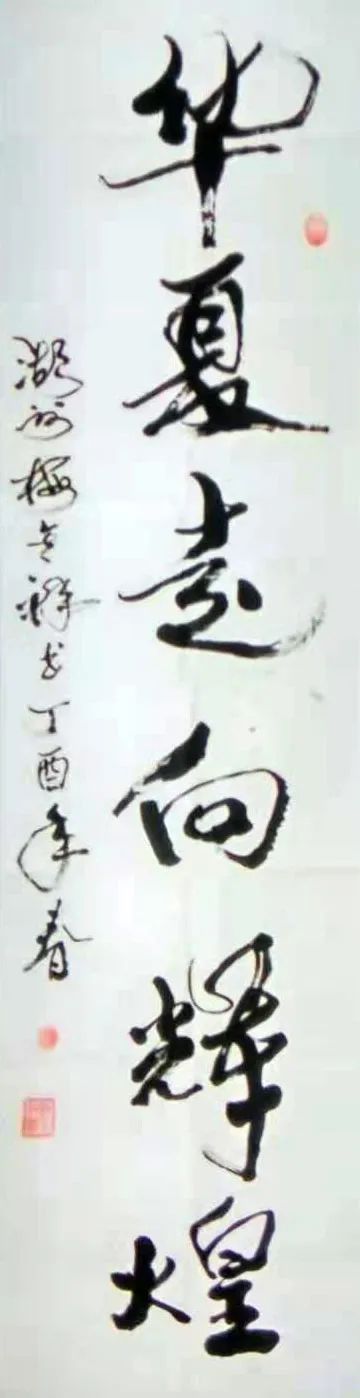 华夏走向辉煌
湖州梅 祥书丁酉年春